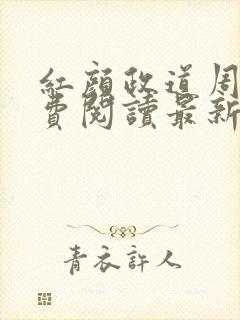 紅顏政道周
費閱讀最新
青衣許人